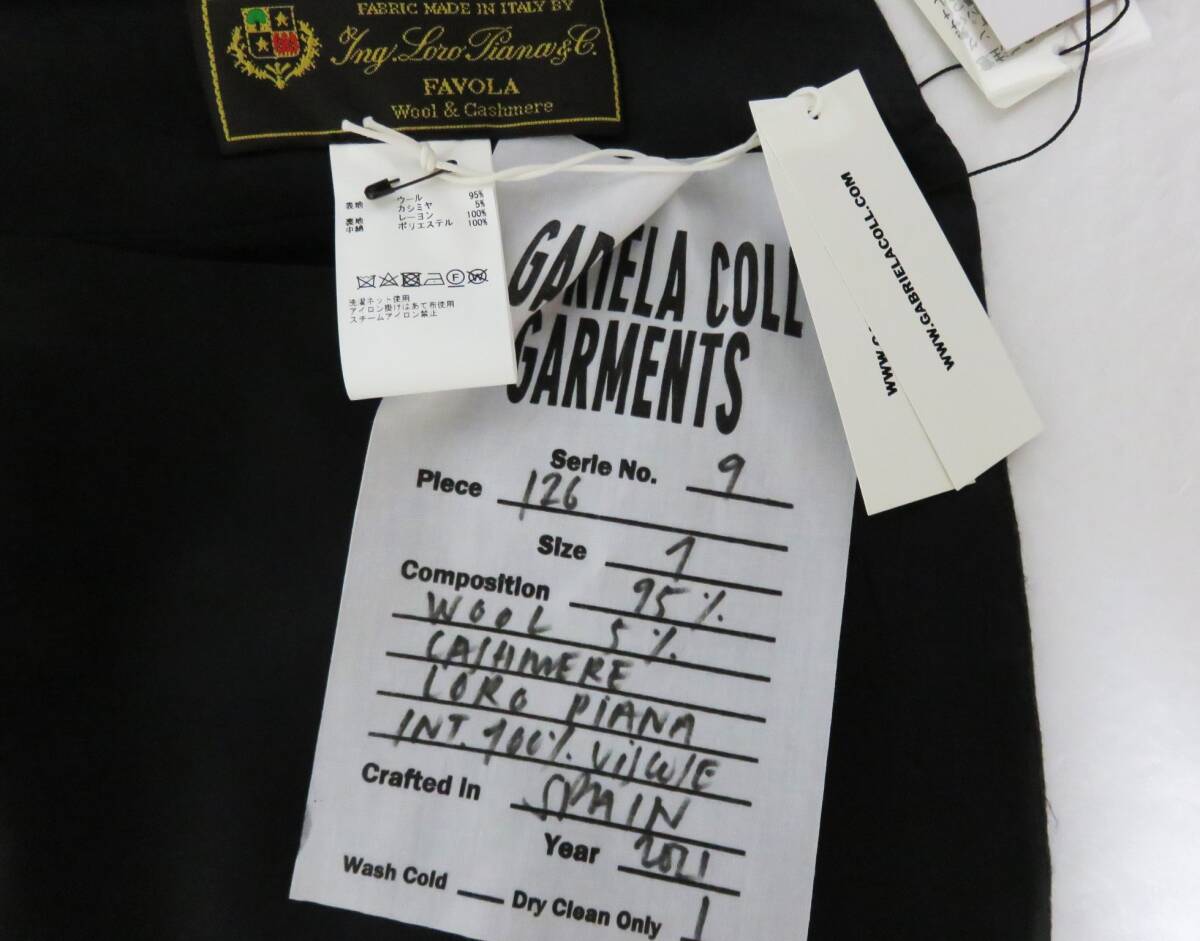 FABRIC MADE IN ITALY BY
Ing. Loro Piana & C.
FAVOLA
Wool & Cashmere
表地 ウール 95%
カシミヤ 5%
裏地 レーヨン 100%
中綿 ポリエステル 100%
洗濯ネット使用
アイロン掛けはあて布使用
スチームアイロン禁止
GARIELA COLL
GARMENTS
Serie No. 9
Piece 126
Size 1
Composition 95%
WOOL 5%
CASHMERE
LORO PIANA
INT. 100%
Crafted In SPAIN
Year 2021
Wash Cold
Dry Clean Only
WWW.GABRIELACOLL.COM
WWW.